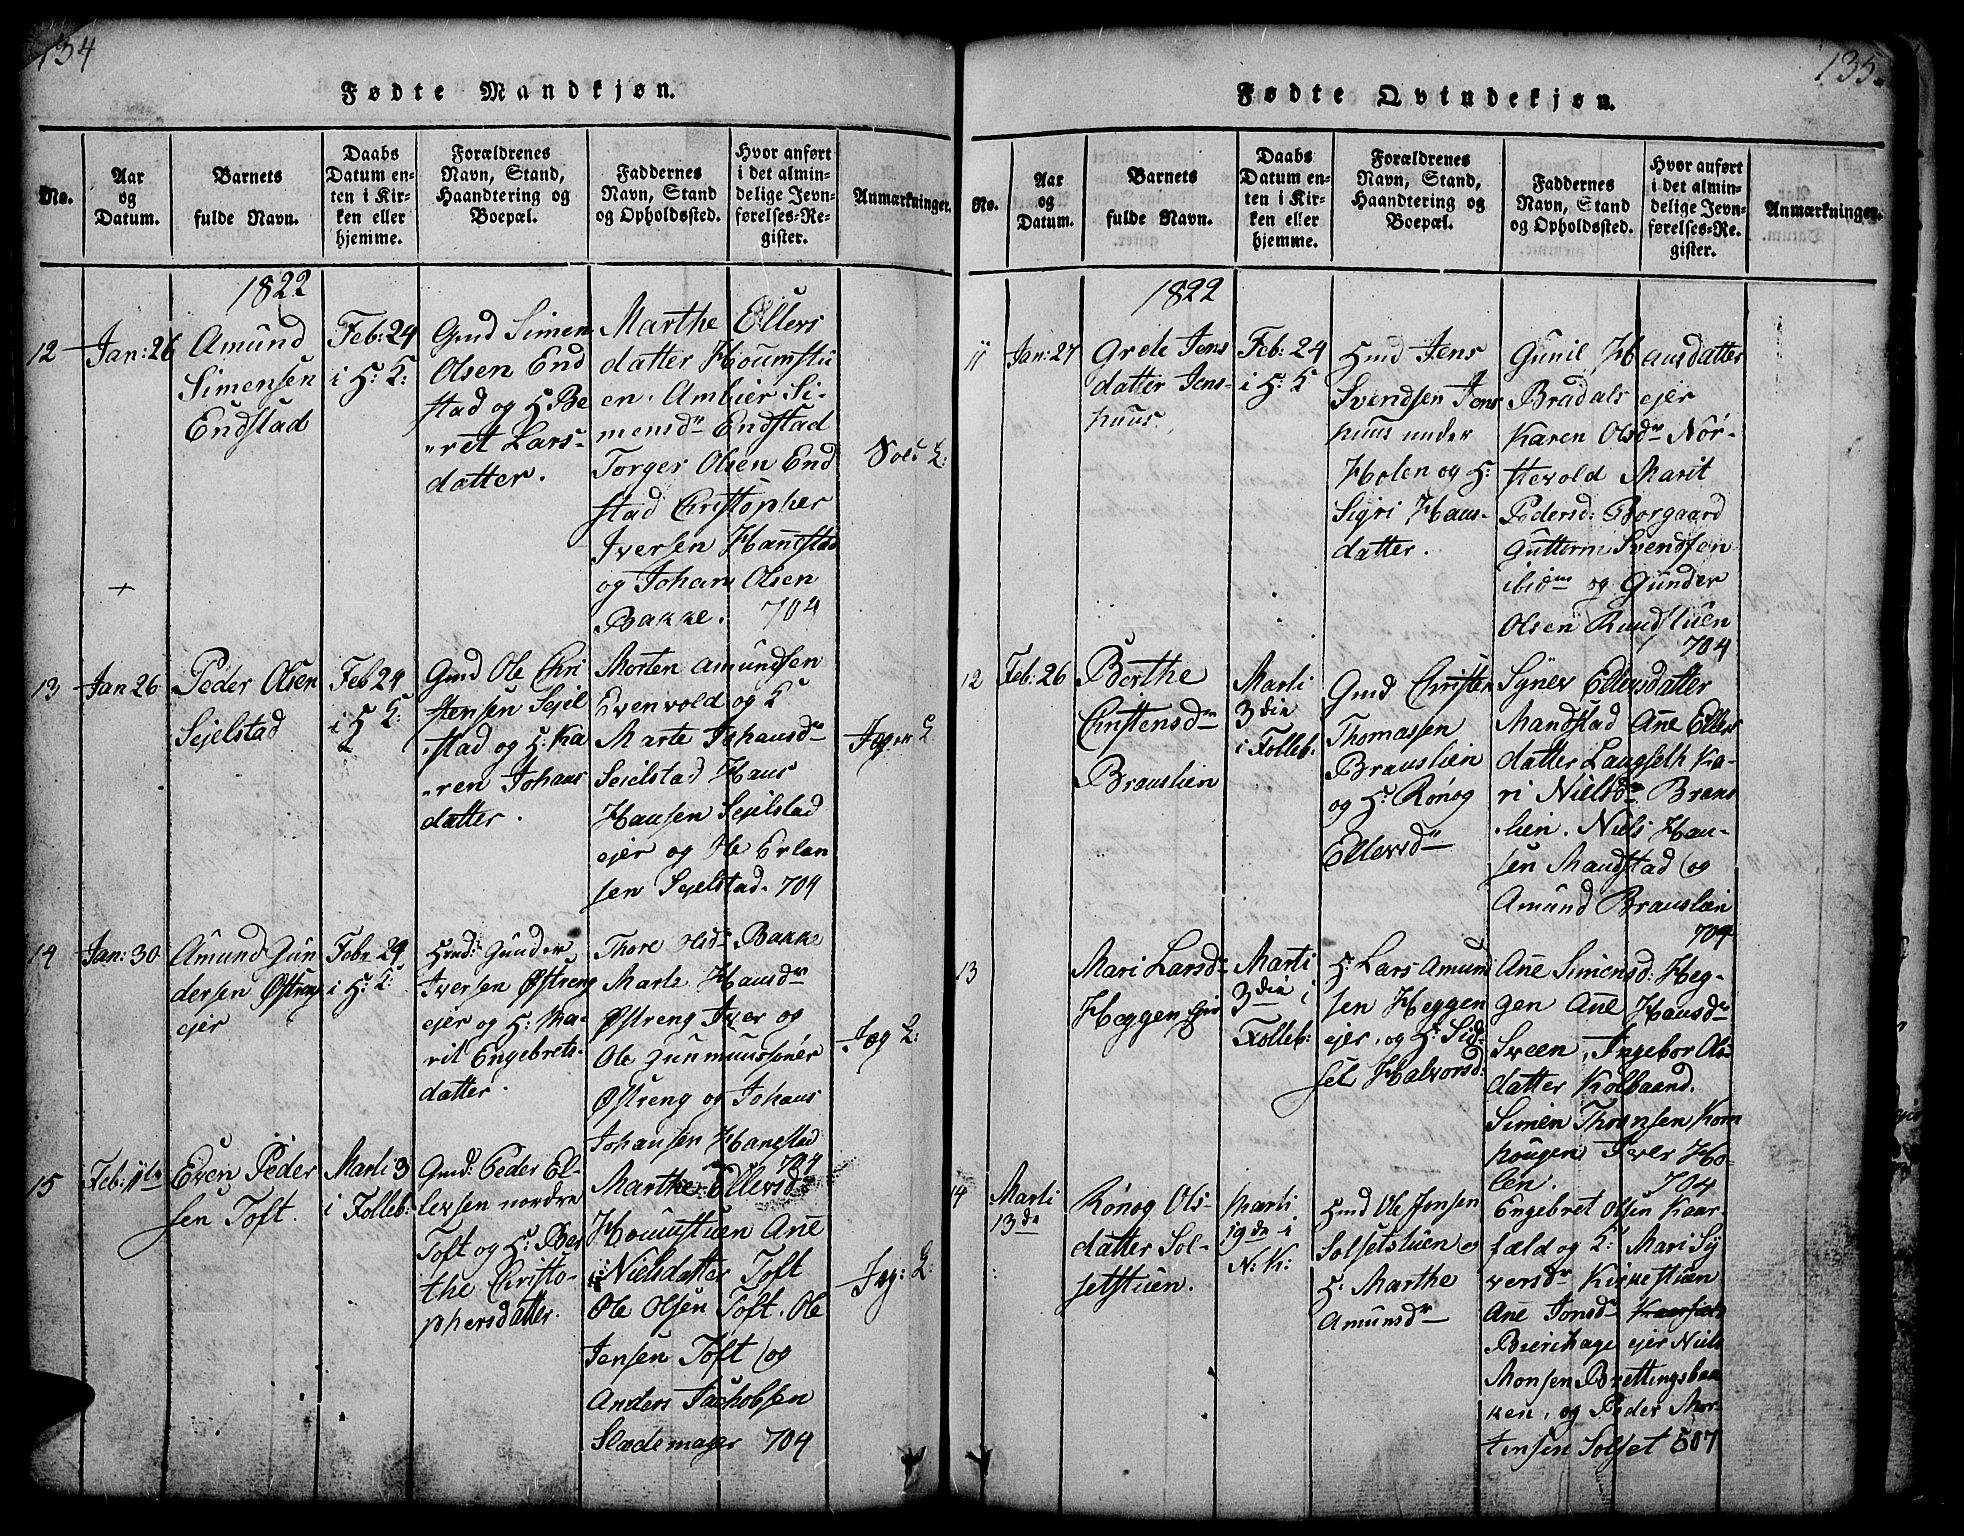 134
Fødte Mandkjøn.
No.
Aar
og
Datum.
Barnets
fulde Navn.
Daabs
Datum en-
ten i Kir-
ken eller
hjemme.
Forældrenes
Navn, Stand,
Haandtering og
Boepæl.
Faddernes
Navn, Stand
og Opholdssted.
Hvor anført
i det almin-
delige Jevn-
førelses-Re-
gister.
Anmærkninger.
1822
12
Jan: 26
Amund
Simensen
Endstad
Feb: 24
i H: K:
Gmd Simen
Olsen End
stad og H: Be
"ret Lars-
datter.
Marthe Ellers
datter Houmstu
en. Ambier Si-
mensdr Endstad
Torger Olsen End
stad Christopher
Iversen Hanestad
og Johan Olsen
Bakke. 704
+
13
Jan 26
Peder Olsen
Sejelstad
Feb 24
i H K:
Gmd Ole Chri
stensen Sejel
stad og H: Ka
"ren Johans
datter.
Morten Amundsen
Evenvold og K
Marte Johansdr
Sejelstad Hans
Hansen Sejelstad
ejer og Ole Erlan
sen Sejelstad. 704
14
Jan: 30
Amund Gun
dersen Østreng
ejer
Febr. 24
i H: K:
Gmd: Gunder
Iversen Østreng
ejer og H: Ma-
rit Engebrets-
datter.
Thore Olsdr Bakke
Marte Hansdr
Østreng Iver og
Ole Gunmunssøner
Østreng og Johans
Johansen Hanestad
704
15
Feb: 11te
Even Peder
sen Toft.
Marti 3
i Folleb:
Gmd: Peder El-
levsen nordre
Toft og H: Ber
the Christo-
phersdatter.
Marthe Ellevsdr
Houmstuen Ane
Nielsdatter Toft
Ole Olsen Toft. Ole
Jensen Toft og
Anders Jachobsen
Slædemager 704
135.
Fødte Qvindekjøn.
No.
Aar
og
Datum.
Barnets
fulde Navn.
Daabs
Datum en-
ten i Kir-
ken eller
hjemme.
Forældrenes
Navn, Stand,
Haandtering og
Boepæl.
Faddernes
Navn, Stand
og Opholdssted.
Hvor anført
i det almin-
delige Jevn-
førelses-Re-
gister.
Anmærkninger.
1822
11
Jan: 27
Grete Jens
datter Jens-
huus.
Feb: 24
i H: K
Hmd Jens
Svendsen Jens
huus under
Holen og H:
Sigri Hans-
datter.
Gunil Hansdatter
Bradals ejer
Karen Olsdr Nør-
stevold Marit
Pedersd: Borgaard
Guttorm Svendsen
ibidm og Gunder
Olsen Rundstuen
704
12
Feb: 26
Berthe
Christensdr
Brauslien
Marti
3die
i Folleb:
Gmd Christen
Thomassen
Brauslien
og H: Rønog
Ellevsdr
Synev Ellevsdatter
Mandstad Ane Ellers
datter Laugseth Ka-
ri Nielsdr Braus
lien. Niels Han-
sen Mandstad og
Amund Brauslien
704
13
Mari Larsdr
Heggen
Marti
3die i
Folleb:
H: Lars Amund
sen Heggen
ejer, og H: Sid-
sel Halvorsd:
Ane Simensd: Heg-
gen Ane Hansdr
Sveen, Ingebor Ols-
datter Kolbaand.
Simen Thorsen Korn
hougen Iver Ho-
len. 704
14
Marti
13de
Rønog Ols-
datter Sol-
setstuen.
Marti
19de i
N: K:
Hmd Ole Jensen
Solsetstuen og
H: Marthe
Amundsdr
Engebret Olsen Kaar-
fæld og K: Mari Sy
versdr Kirkestuen
Ane Jonsdr Kaarfæld
Beierhage ejer Niels
Monsen Brettingsbak
ken, og Peder Mor-
tensen Solset 507
Sols L:
Jæger L
Jæg L:
Jæg: L: